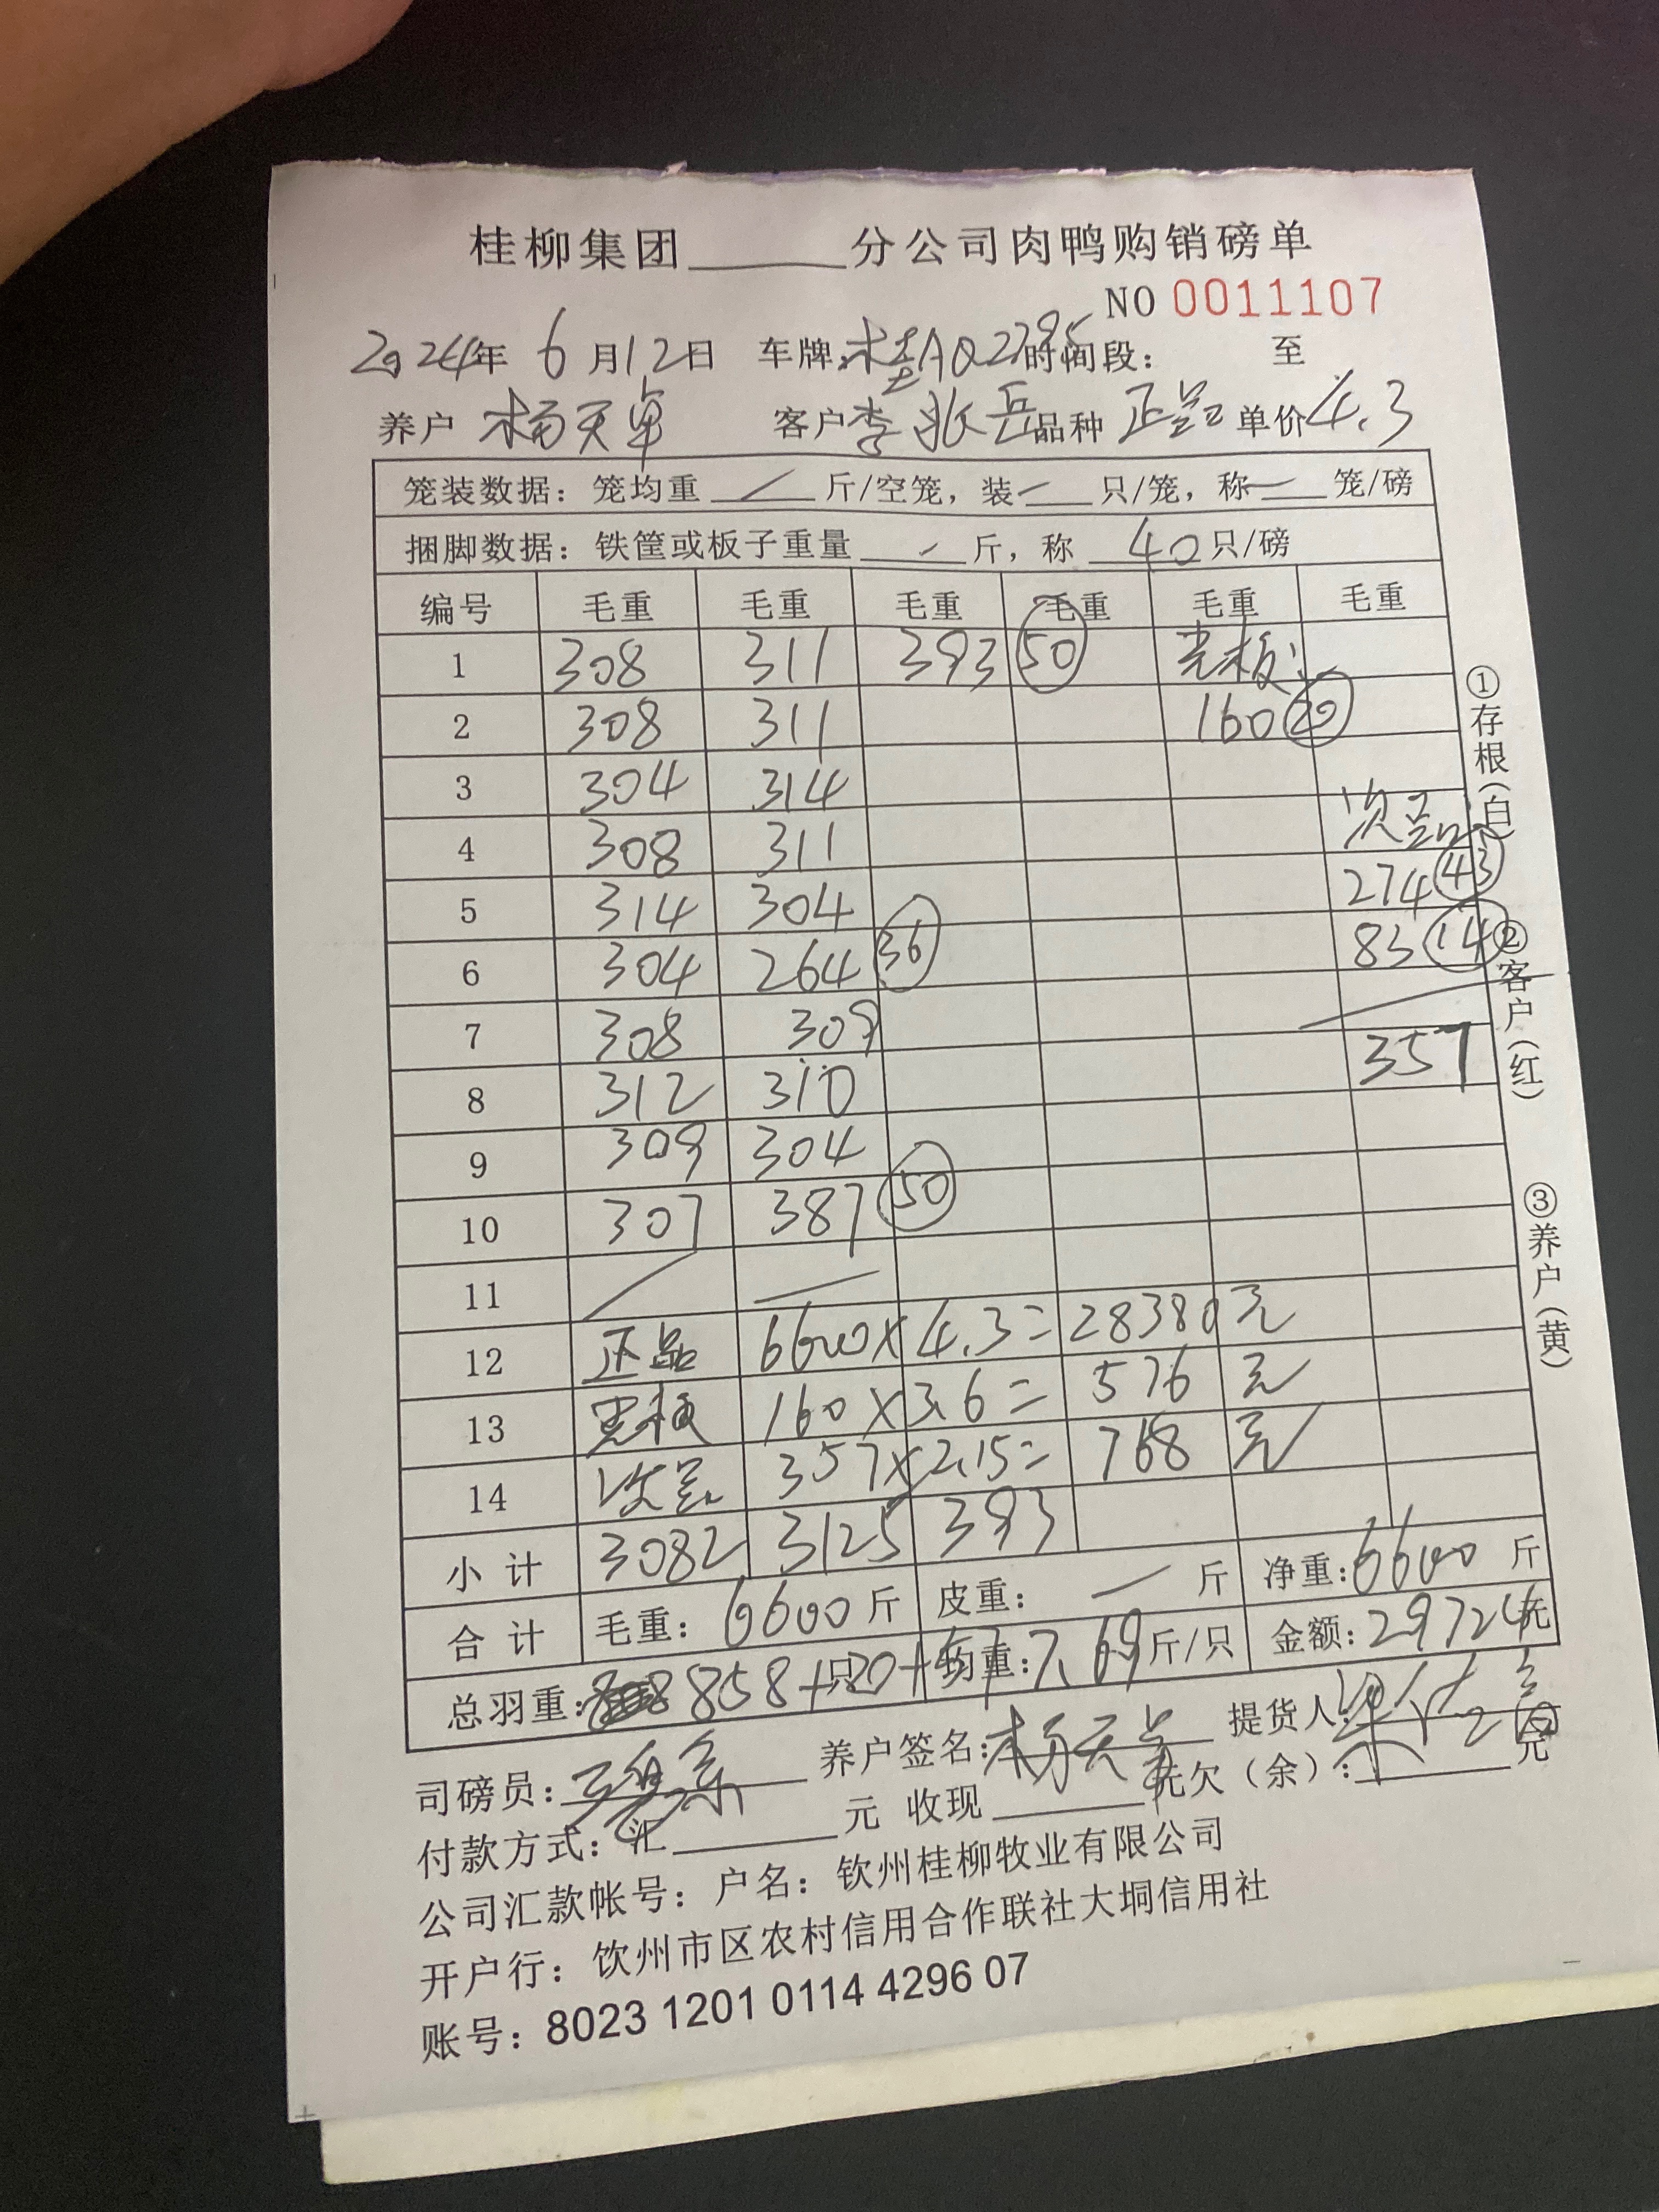 桂柳集团______分公司肉鸭购销磅单
NO 0011107
2024年 6 月12日 车牌:桂AQ2795 时间段: 至
养户 杨天卓 客户 李兆岳 品种 正品 单价4.3
笼装数据: 笼均重 / 斤/空笼, 装 / 只/笼, 称 / 笼/磅
捆脚数据: 铁筐或板子重量 / 斤, 称 40 只/磅
编号 毛重 毛重 毛重 毛重 毛重 毛重
1 308 311 393 50 光板:
2 308 311 160 20
3 304 314
4 308 311 次品:
5 314 304 274 43
6 304 264 36 83 14
7 308 309 357
8 312 310
9 309 304
10 307 387 50
11 / /
12 正品 6600×4.3=28380元
13 光板 160×3.6=576元
14 次品 357×2.15=768元
小计 3082 3125 393
合计 毛重: 6600 斤 皮重: / 斤 净重:6600 斤
总羽重: 858+20+57只 均重:7.69斤/只 金额:29724元
司磅员: 养户签名:杨天卓 提货人:
付款方式: 汇______元 收现______元欠(余):______元
公司汇款帐号: 户名: 钦州桂柳牧业有限公司
开户行: 钦州市区农村信用合作联社大垌信用社
账号: 8023 1201 0114 4296 07
①存根(白)
②客户(红)
③养户(黄)